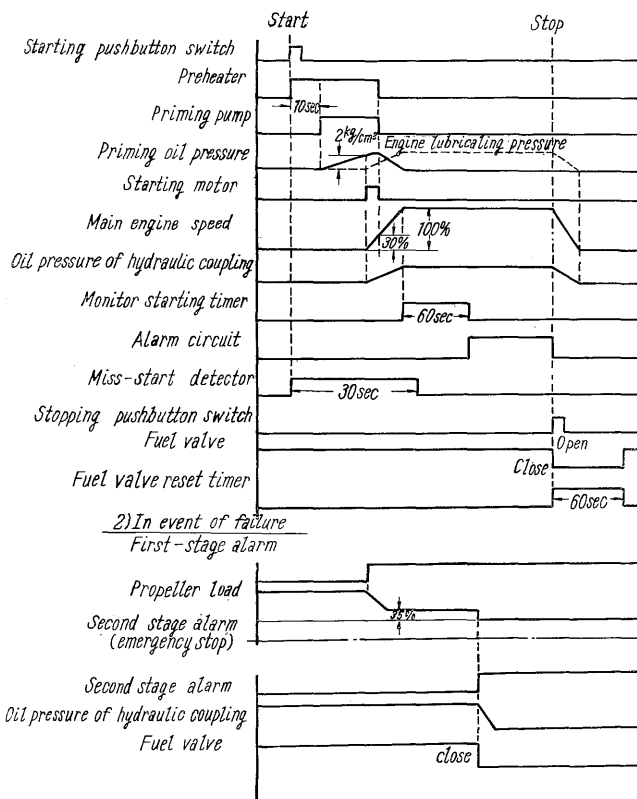 Start
Stop
Starting pushbutton switch
Preheater
10sec
Priming pump
2kg/cm²
Engine lubricaling pressure
Priming oil pressure
Starting motor
Main engine speed
100%
30%
Oil pressure of hydraulic coupling
Monitor starting timer
60sec
Alarm circuit
Miss-start detector
30sec
Stopping pushbutton switch
Fuel valve
Open
Close
Fuel valve reset timer
60sec
2) In event of failure
First-stage alarm
Propeller load
35%
Second stage alarm
(emergency stop)
Second stage alarm
Oil pressure of hydraulic coupling
Fuel valve
close